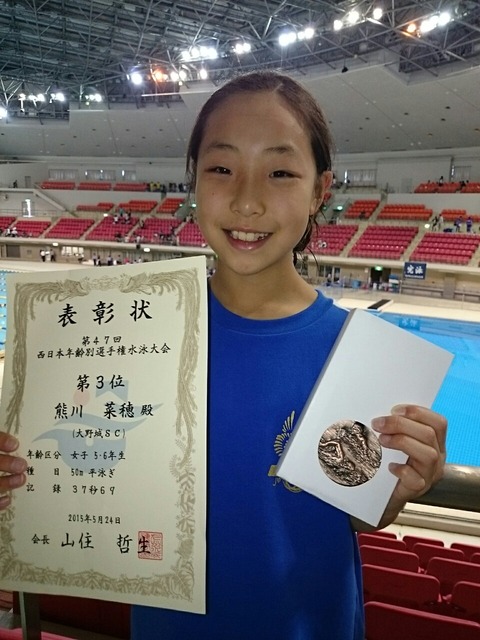 表彰状
第47回
西日本年齢別選手権水泳大会
第3位
熊川 菜穂 殿
(大野城SC)
年齢区分 女子 5・6年生
種目 50m 平泳ぎ
記録 37秒69
2015年5月24日
会長 山住 哲生